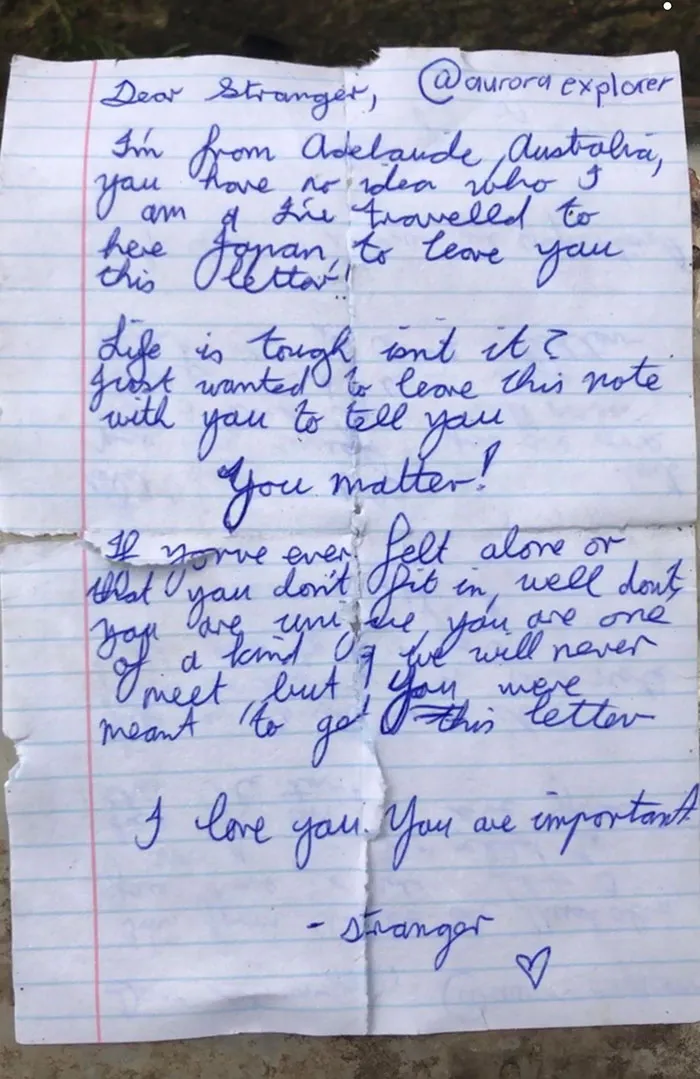 Dear Stranger, @auroraexplorer
I'm from Adelaide, Australia,
you have no idea who I
am & I've travelled to
here Japan, to leave you
this letter!
Life is tough isn't it?
Just wanted to leave this note
with you to tell you
You matter!
If you've ever felt alone or
that you don't fit in, well don't,
you are unique, you are one
of a kind & we will never
meet, but you were
meant to get this letter
I love you. You are important.
- Stranger